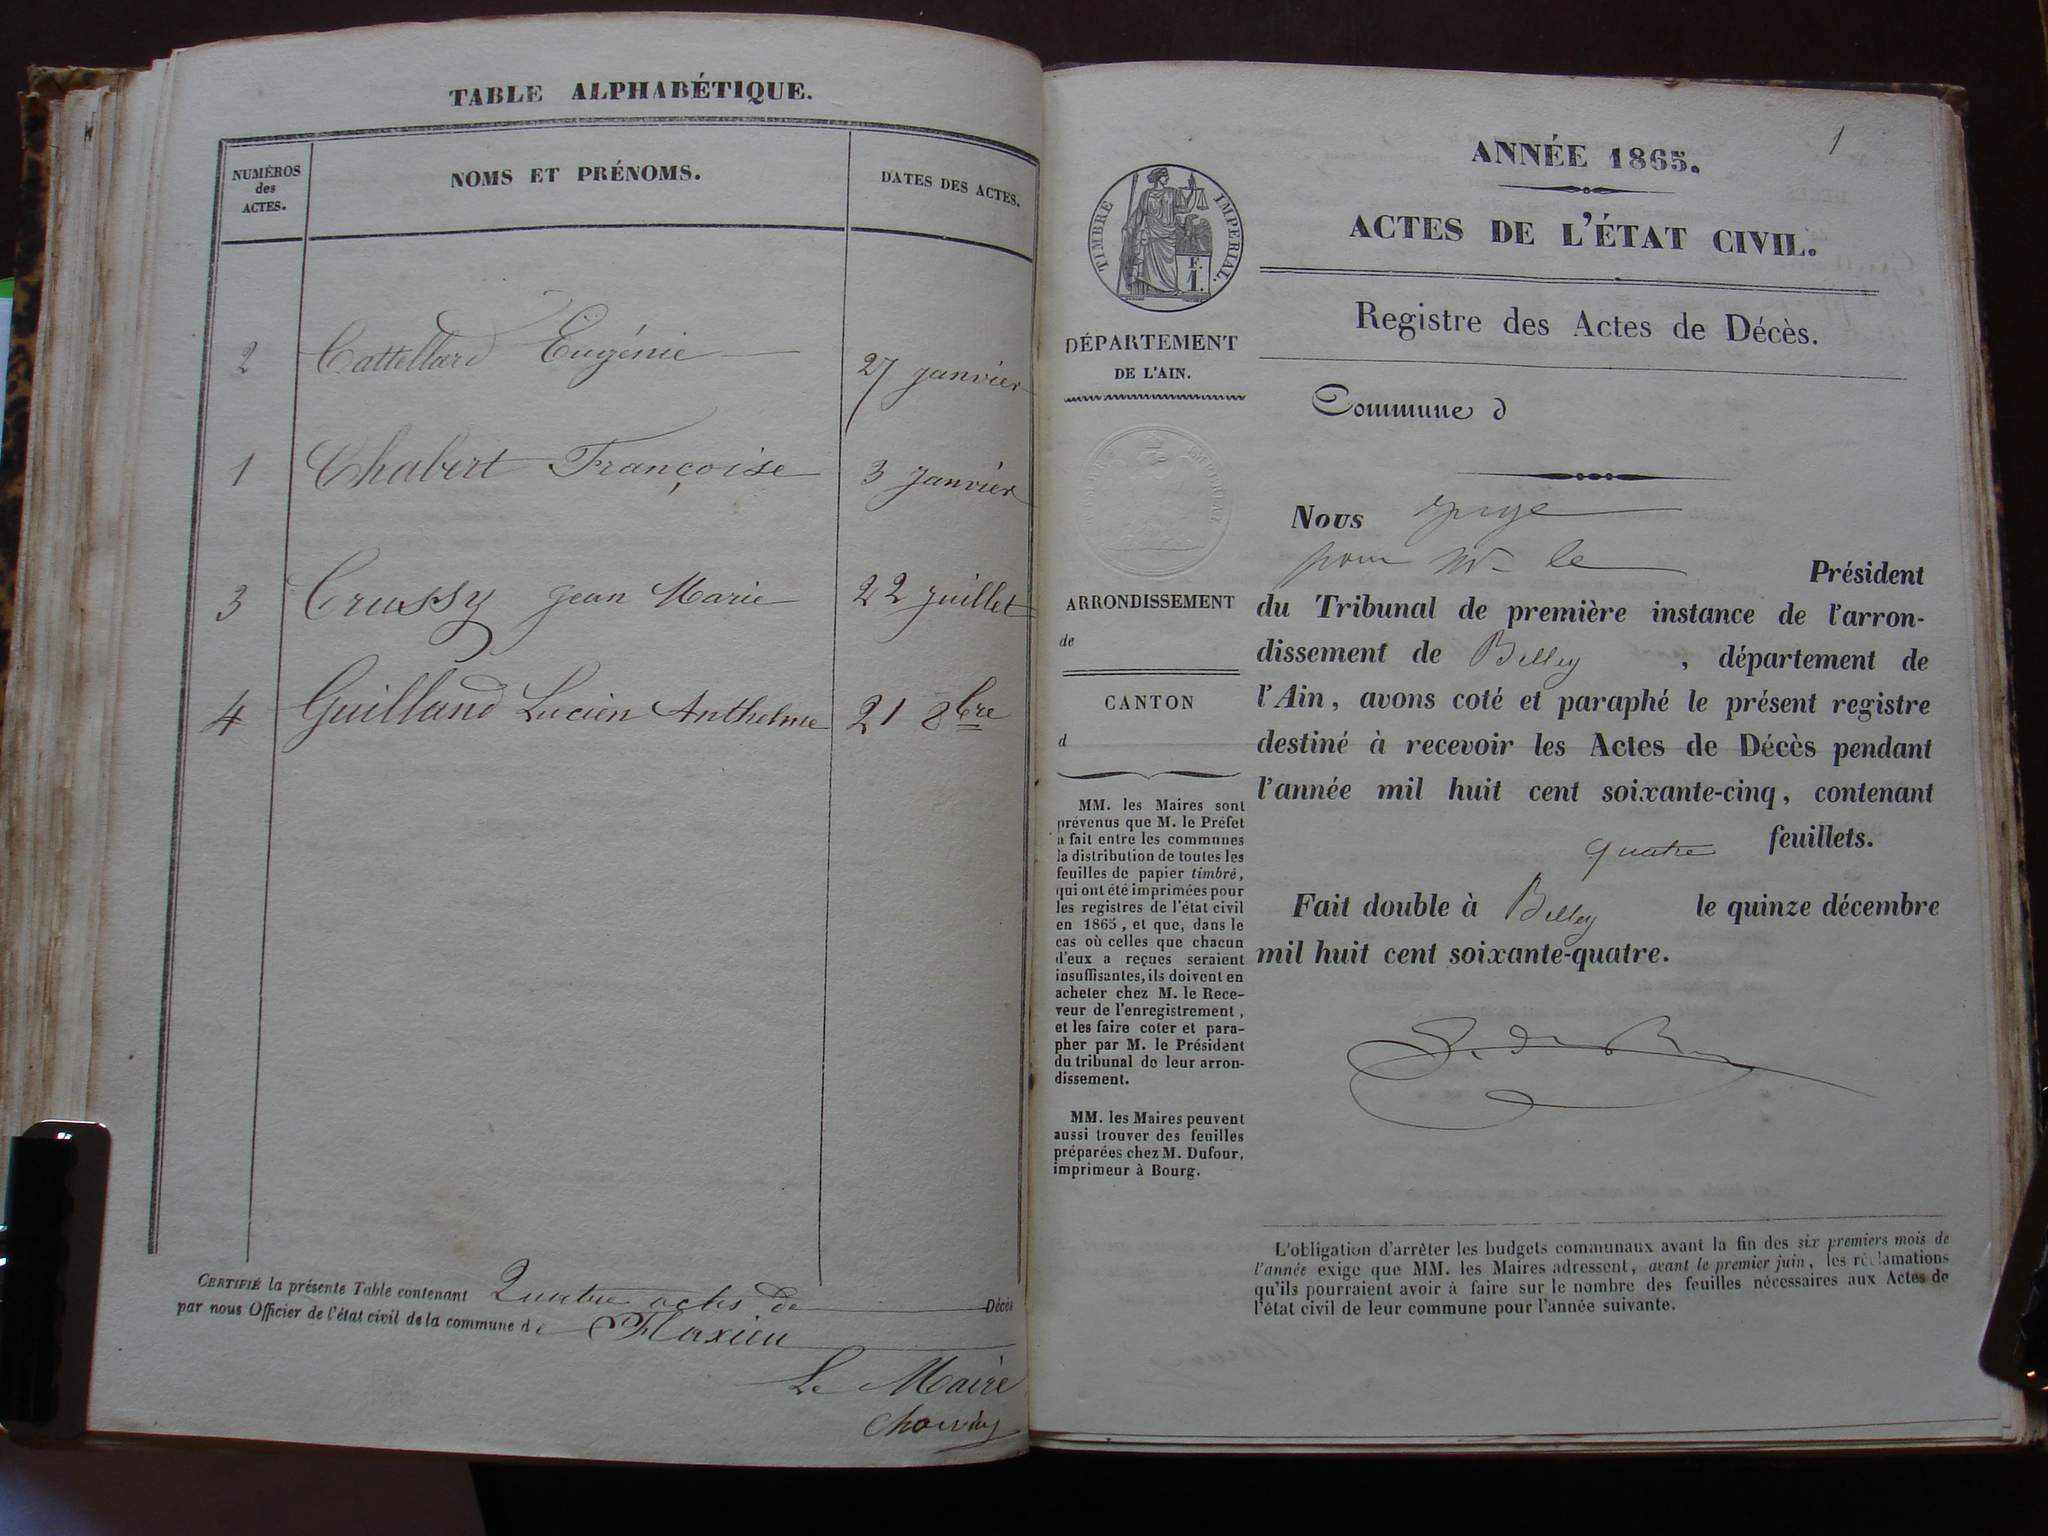 TABLE ALPHABÉTIQUE.
NUMÉROS
des
ACTES.
NOMS ET PRÉNOMS.
DATES DES ACTES.
2 Cattelland Eugénie 27 janvier
1 Chabert Françoise 3 Janvier
3 Crussy Jean Marie 22 Juillet
4 Guilland Lucien Anthelme 21 8bre
CERTIFIÉ la présente Table contenant Quatre actes de Décès
par nous Officier de l'état civil de la commune d e Flaxieu
Le Maire
1
ANNÉE 1865.
ACTES DE L'ÉTAT CIVIL.
Registre des Actes de Décès.
TIMBRE IMPERIAL.
F.
1.
DÉPARTEMENT
DE L'AIN.
TIMBRE IMPERIAL
ARRONDISSEMENT
de
CANTON
d
MM. les Maires sont
prévenus que M. le Préfet
a fait entre les communes
la distribution de toutes les
feuilles de papier timbré,
qui ont été imprimées pour
les registres de l'état civil
en 1865, et que, dans le
cas où celles que chacun
d'eux a reçues seraient
insuffisantes, ils doivent en
acheter chez M. le Rece-
veur de l'enregistrement,
et les faire coter et para-
pher par M. le Président
du tribunal de leur arron-
dissement.
MM. les Maires peuvent
aussi trouver des feuilles
préparées chez M. Dufour,
imprimeur à Bourg.
Commune d
Nous juge
pour Mr le Président
du Tribunal de première instance de l'arron-
dissement de Belley, département de
l'Ain, avons coté et paraphé le présent registre
destiné à recevoir les Actes de Décès pendant
l'année mil huit cent soixante-cinq, contenant
quatre feuillets.
Fait double à Belley le quinze décembre
mil huit cent soixante-quatre.
L'obligation d'arrêter les budgets communaux avant la fin des six premiers mois de
l'année exige que MM. les Maires adressent, avant le premier juin, les réclamations
qu'ils pourraient avoir à faire sur le nombre des feuilles nécessaires aux Actes de
l'état civil de leur commune pour l'année suivante.